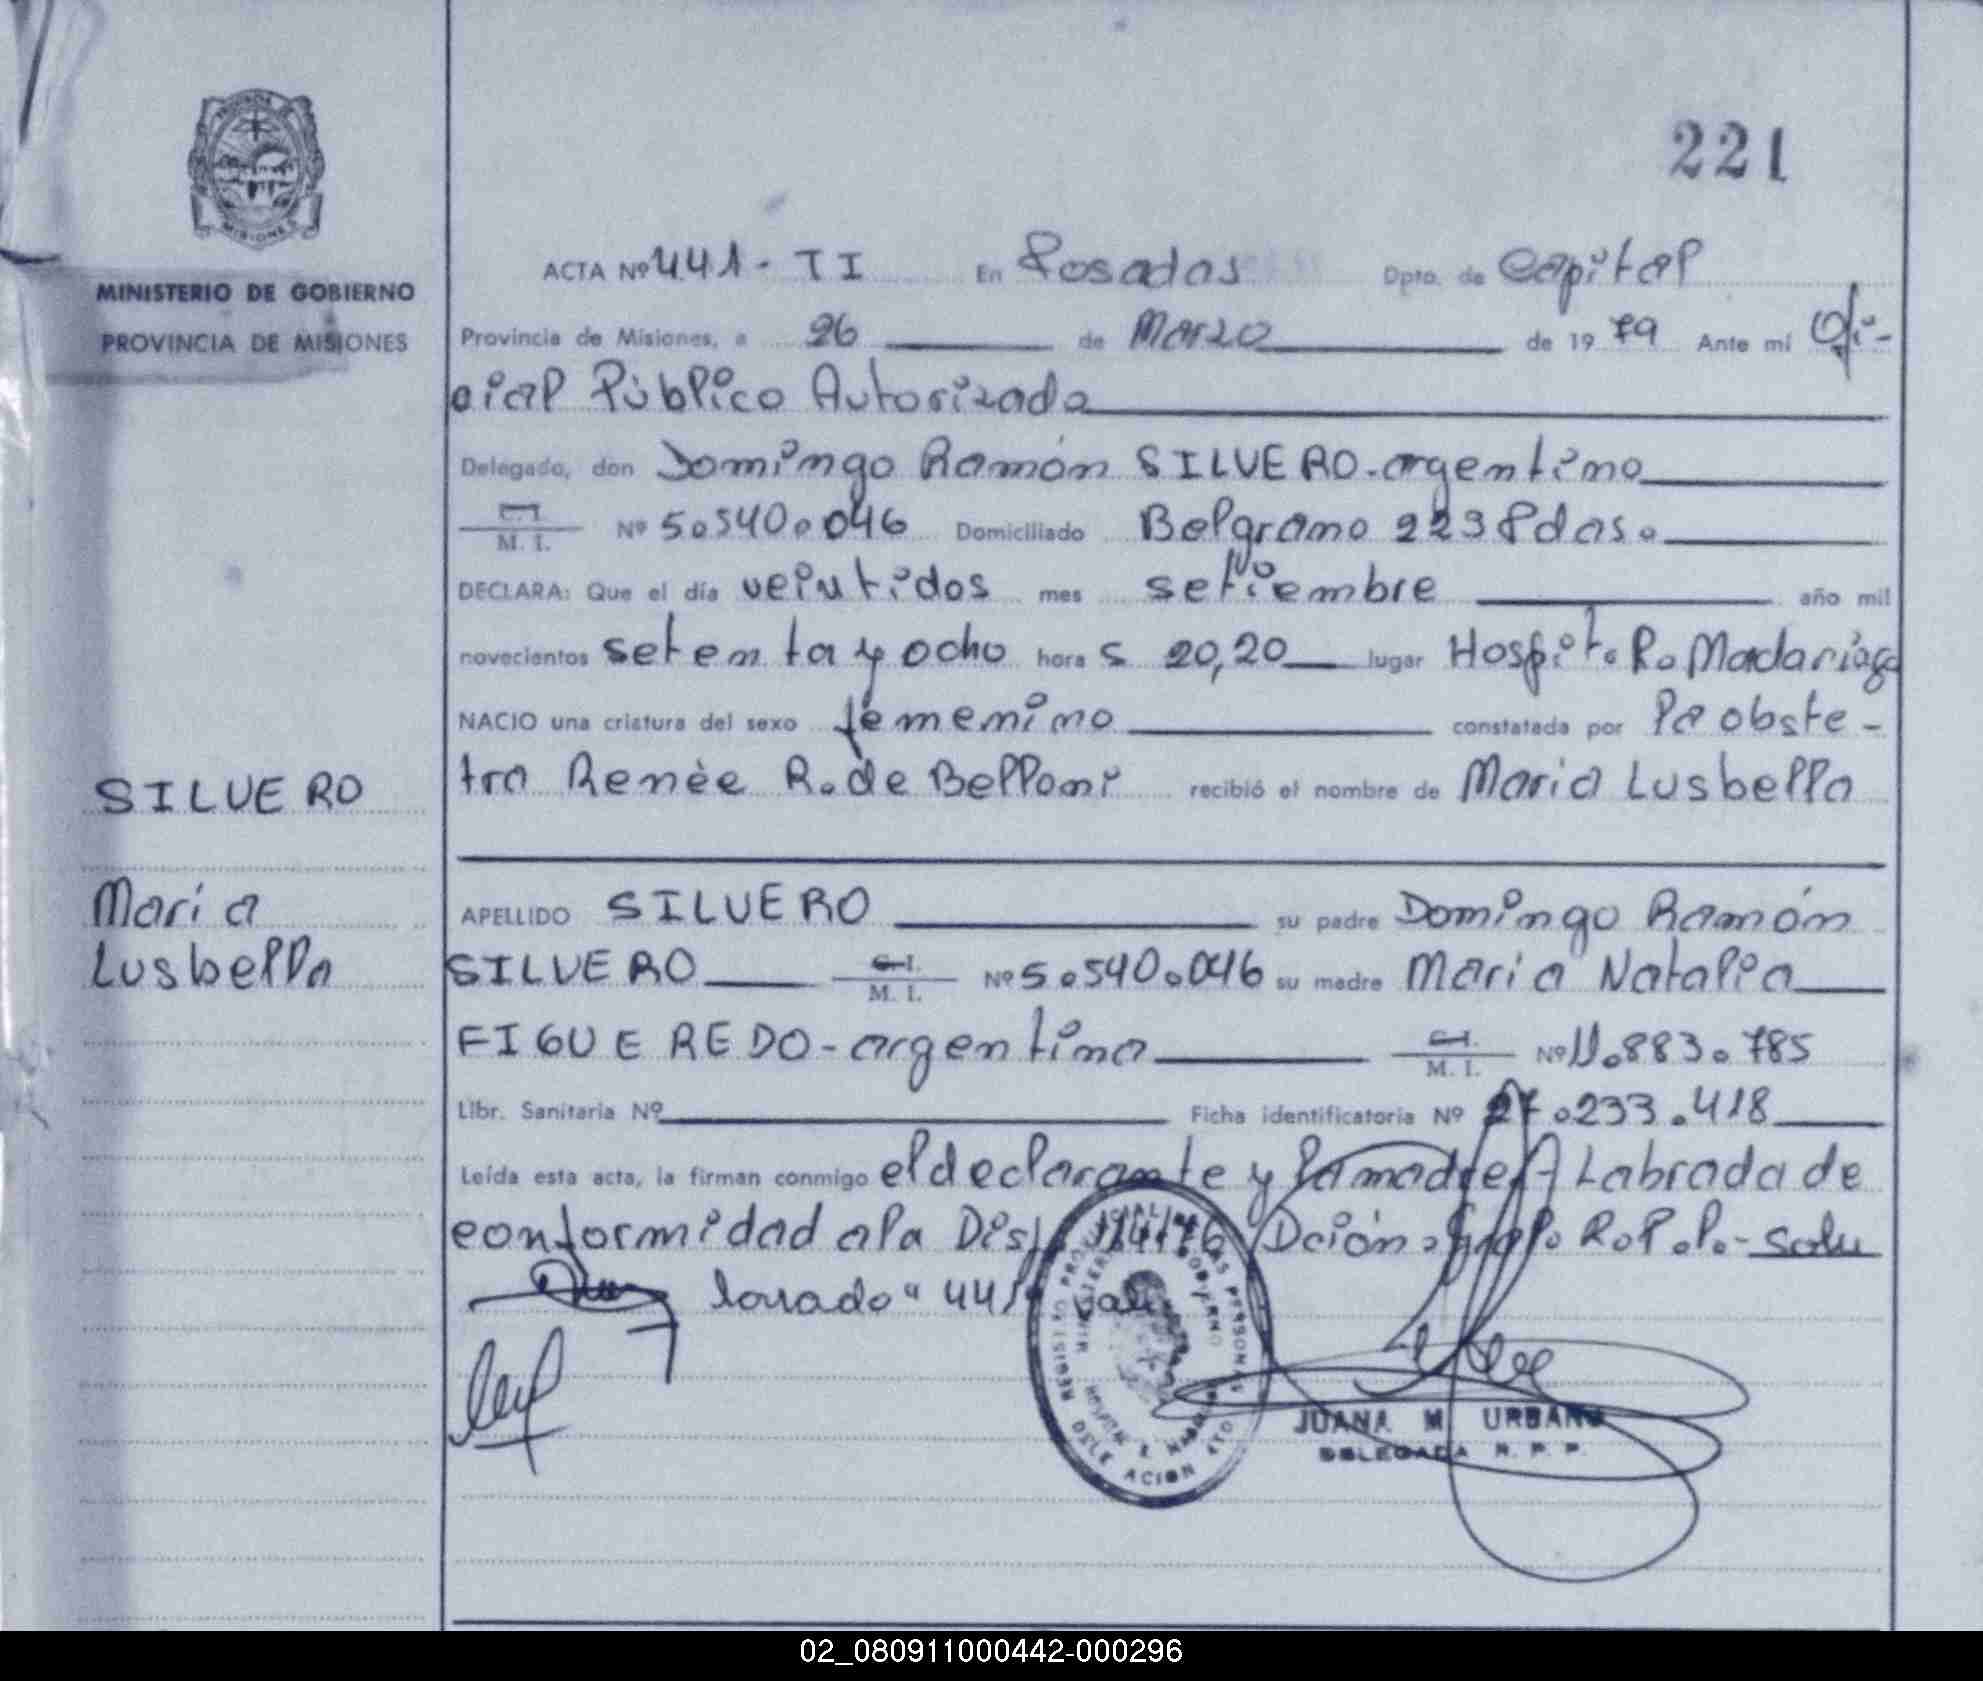 221
PROVINCIA DE MISIONES
MINISTERIO DE GOBIERNO
PROVINCIA DE MISIONES
ACTA Nº 441 - TI En Posadas Dpto. de Capital
Provincia de Misiones, a 26 de Marzo de 1979 Ante mí Ofi-
cial Público Autorizada
Delegado, don Domingo Ramón SILVERO - argentino
C. I. / M. I. Nº 5.540.046 Domiciliado Belgrano 223 Pdas.
DECLARA: Que el día veintidos mes setiembre año mil
novecientos setenta y ocho hora s 20,20 lugar Hospit. R. Madariaga
NACIO una criatura del sexo femenino constatada por la obste-
tra Renèe R. de Belloni recibió el nombre de Maria Lusbella
SILVERO
Maria
Lusbella
APELLIDO SILVERO su padre Domingo Ramón
SILVERO C. I. / M. I. Nº 5.540.046 su madre Maria Natalia
FIGUEREDO - argentina C. I. / M. I. Nº 11.883.785
Libr. Sanitaria Nº Ficha identificatoria Nº 27.233.418
Leída esta acta, la firman conmigo el declarante y la madre Labrada de
conformidad a la Disp. 114/76 Dción. Gral. R.P.P. - sobre
"441" vale
REGISTRO PROVINCIAL DE LAS PERSONAS
MINISTERIO GOBIERNO
DELEGACION 4TO
JUANA M URBANO
DELEGADA R. P. P.
02_080911000442-000296